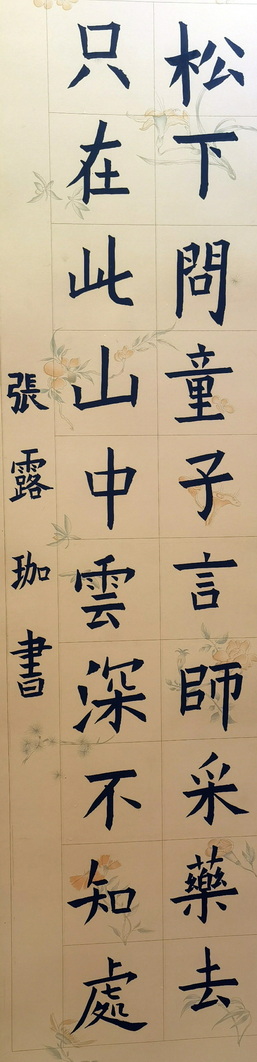 松下問童子言師采藥去
只在此山中雲深不知處
張露珈書